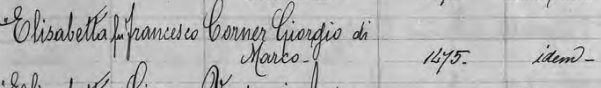 Elisabetta fu Francesco Corner Giorgio di
Marco - 1475. idem -